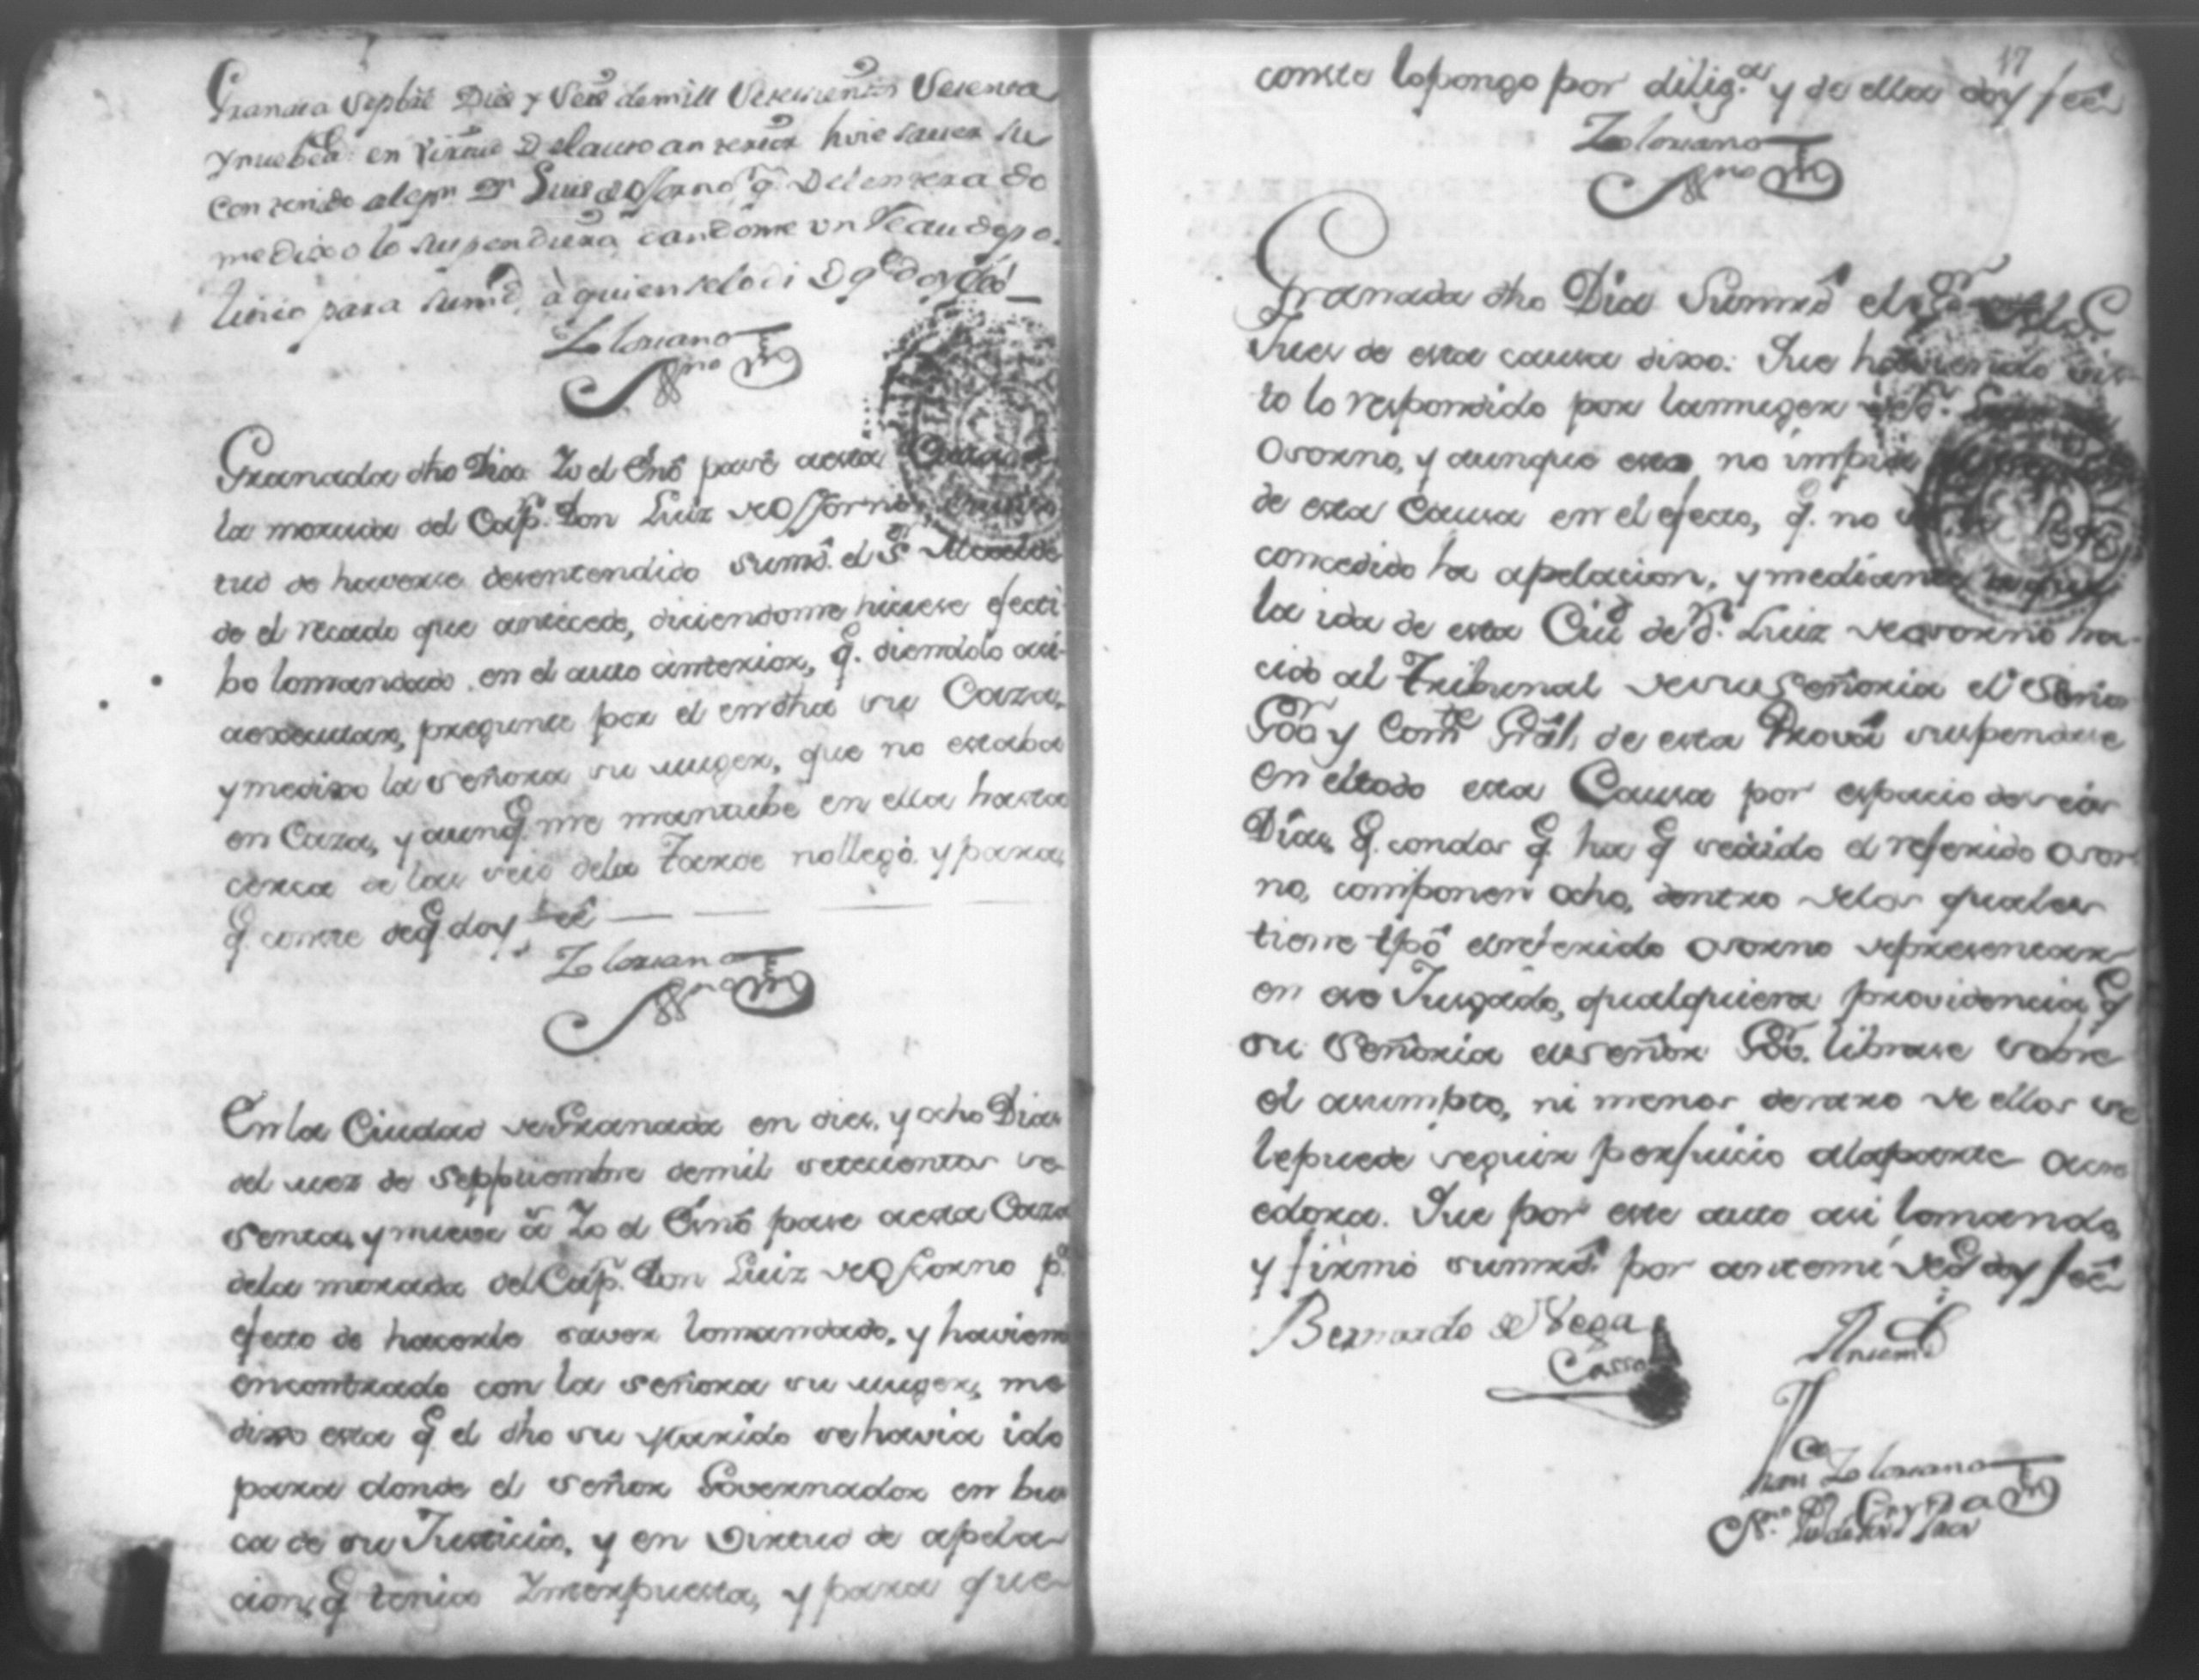 Granada Septre Dies y Seis de mill Setecientos Sesenta
y nuebe a. en Virtud Del auto anterior hise saver su
contenido al Capn. Dn Luis de Osorno, q. Del enterado
me dixo lo suspendiera dandome un Recaudo po-
litico para sumd. à quien se lo di D qe doy feé
Zoloriano
SSno
Granada dho Dia Yo el Ssno pasè a esta Caza de
la morada del Capn. Don Luiz de Ossorno, en vir-
tud de haverse desentendido sumd. el Sr. Alcalde
de el recado que antecede, diciendome hiciese efecti-
bo lo mandado en el auto anterior, q. siendolo asi
a executar, pregunte por el en dha su Caza,
y me dixo la señora su muger, que no estaba
en Caza, y aunq. me mantube en ella hasta
cerca de las seis de la Tarde no llegò. y para
q. conste de q. doy feé
Zoloriano
SSno
En la Ciudad de Granada en dies, y ocho Dias
del mez de Septtiembre de mil setecientos se-
senta, y nueve as. Yo el Ssno pase a esta Caza
de la morada del Capn. Don Luiz de Ossorno pa.
efecto de hacerle saver lo mandado, y haviendo
encontrado con la señora su muger, me
dixo esta q. el dho su Marido se havia ido
para donde el señor Governador en bus
ca de su Justicia, y en Virtud de apela-
cion, q. tenia Ynterpuesta, y para que
17
conste lo pongo por dilig.as y de ella doy feé
Zoloriano
SSno
Granada dho Dia Sumrd. el Sor
Jues de esta causa dixo: Que haviendo vis-
to lo respondido por la muger de Dn. Luiz
Osorno, y aunque esta no impide
de esta Causa en el efecto, q. no
concedido ha apelacion, y mediante
la ida de esta Ciud. de Dn. Luiz de Osorno ha-
cia al Tribunal de su Señoria el Señor
Gor. y Comte Gral, de esta Prova suspendase
en el todo esta Causa por espacio de seis
Dias, q. con dos q. ha q. salido el referido Osor
no, componen ocho, dentro de los quales
tiene tpo el referido Osorno de presentar
en este Jusgado, qualquiera providencia, q.
su Señoria el señor Gor. librase sobre
el asumpto, ni menos dentro de ellos se
le puede seguir perjuicio a la parte acre
edora. Que por este auto asi lo mando,
y firmó sumrd. por antemi de q. doy feé
Bernardo de Vega
Antemi
Zoloriano